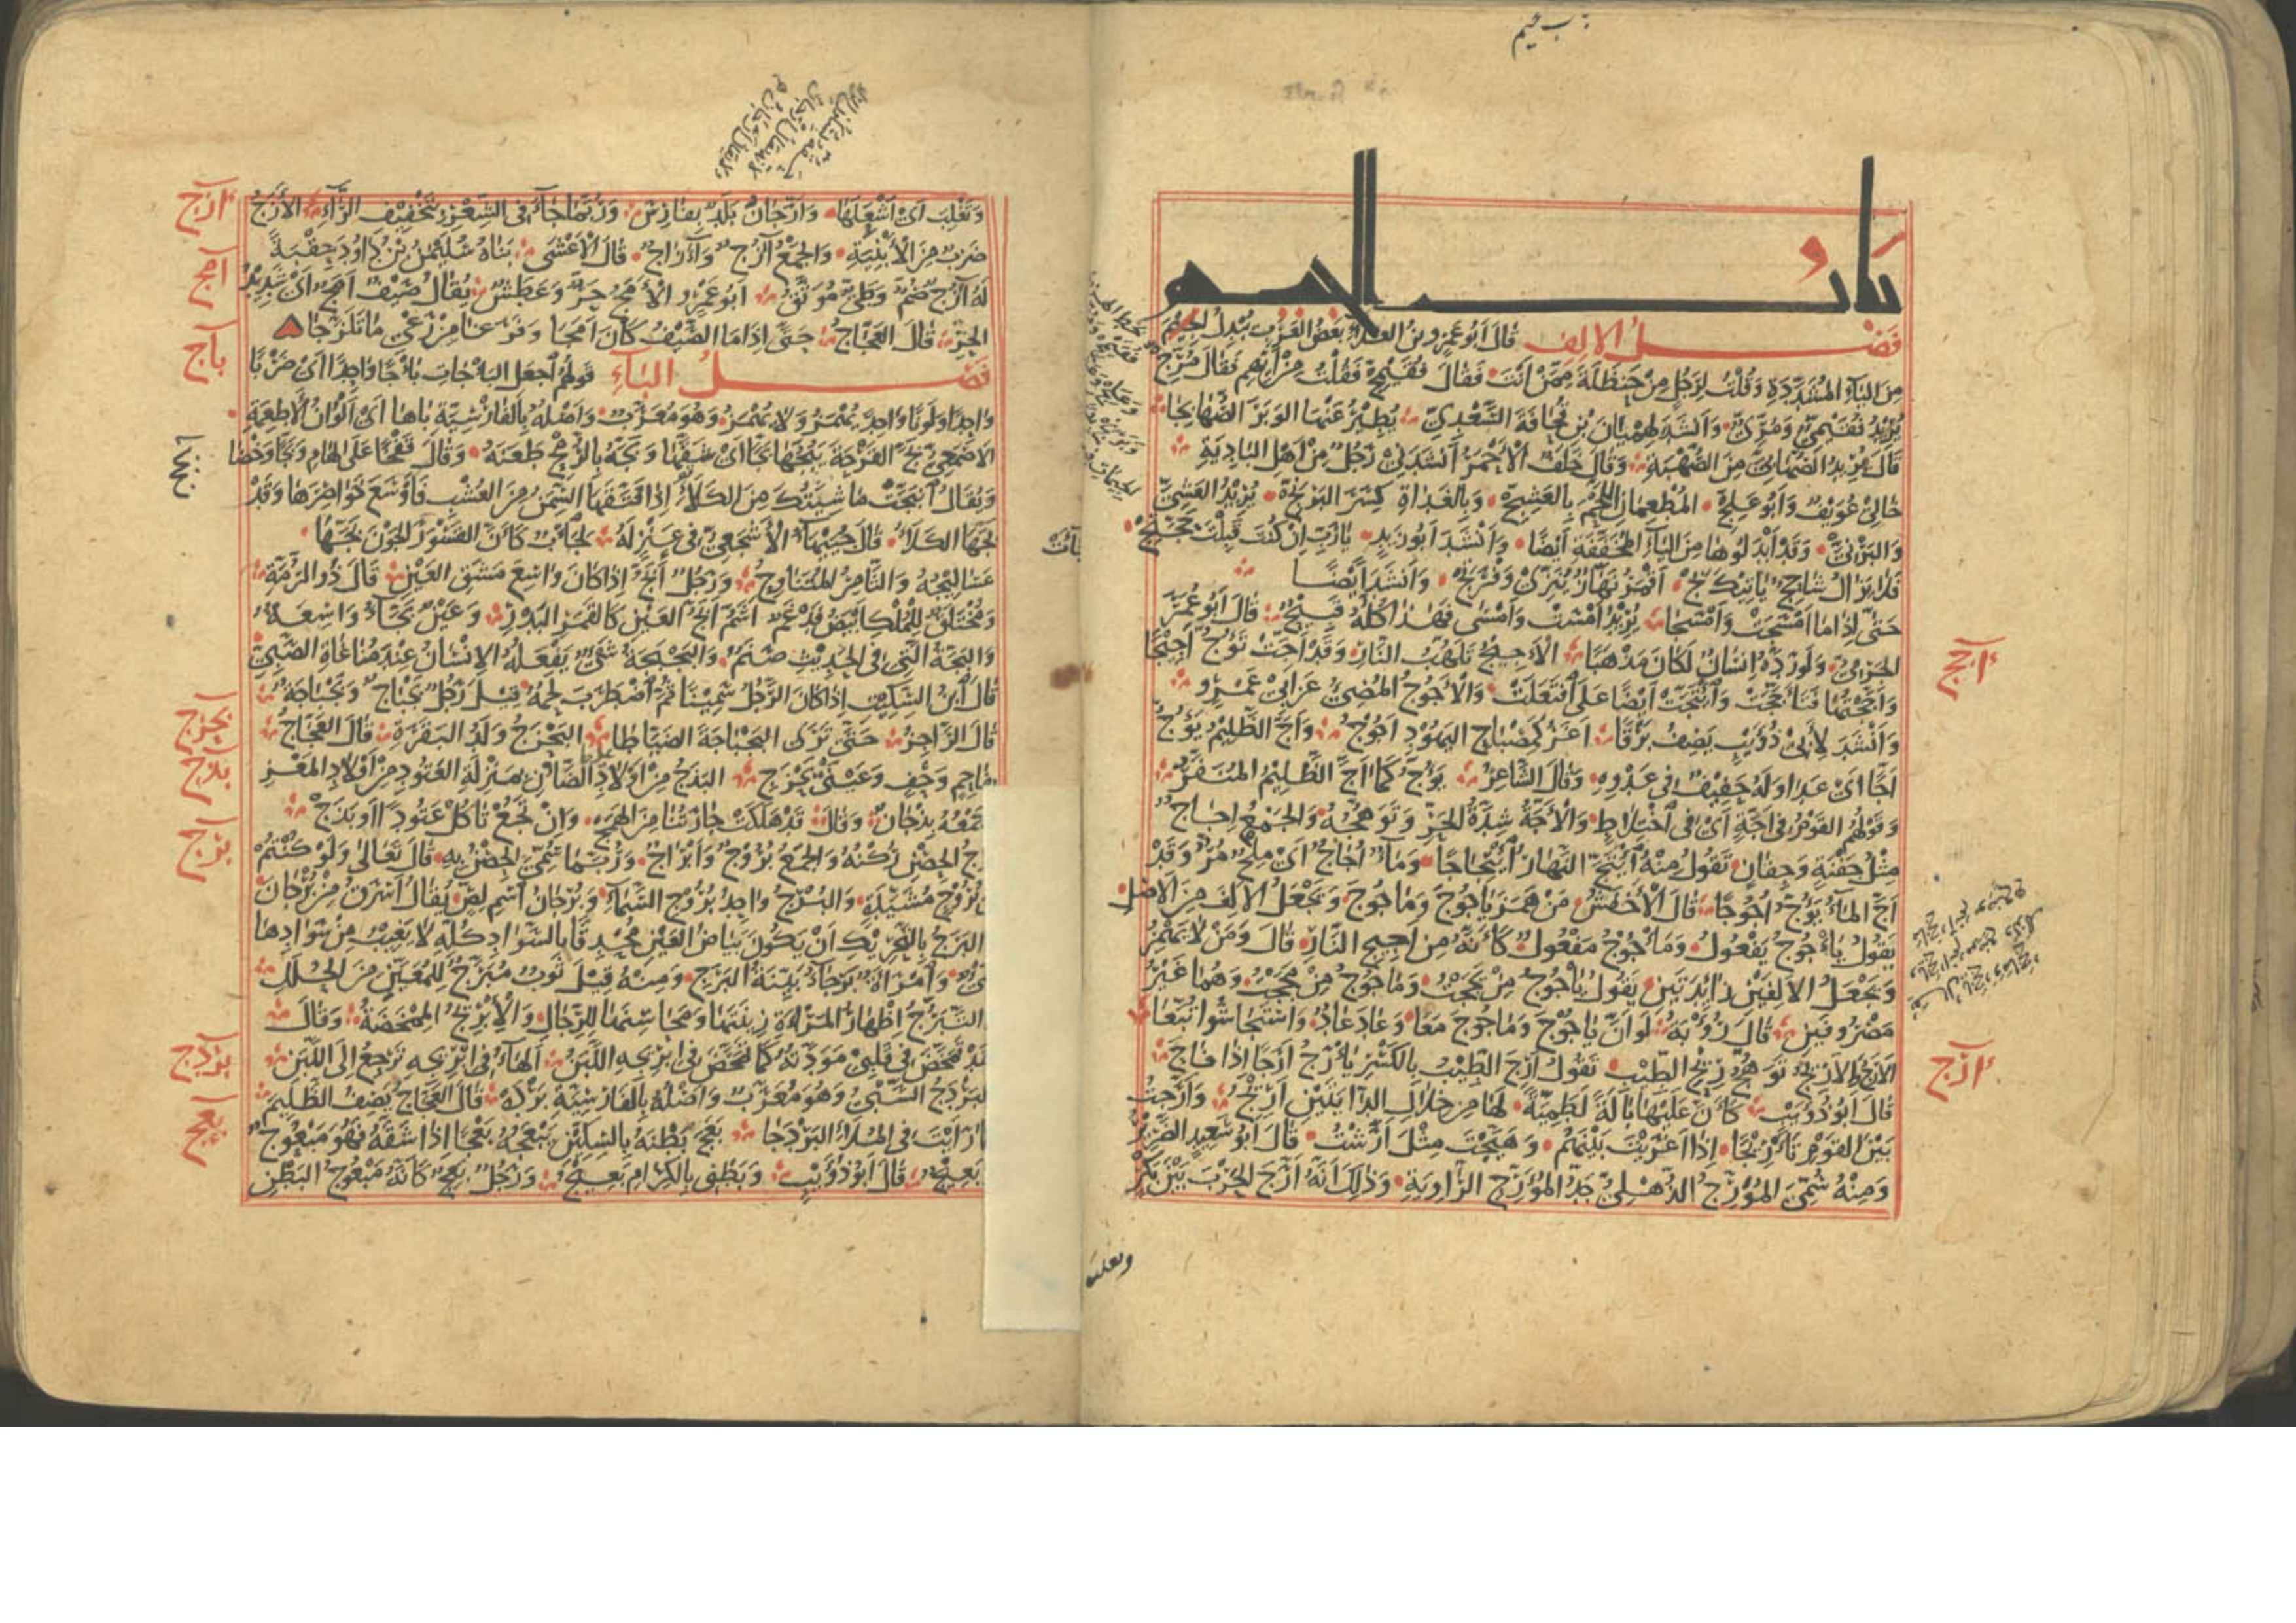 باب الجيم
باب الجيم
فصل الالف قال أبو عمرو بن العلاء بعض العرب يبدل الجيم
من الياء المشددة وقلت لرجل من حنظلة ممن أنت فقال فقيمج فقلت من أيهم فقال مرج
يريد فقيمي ومري وأنشد لهميان بن قحافة السعدي يطير عنها الوبر الصهابجا
قال يريد الصهابي من الصهبة وقال خلف الأحمر أنشدني رجل من أهل البادية
خالي عويف وأبو علج المطعمان اللحم بالعشج وبالغداة كسر البرنج يريد العشي
والبرني وقد أبدلوها من الياء المخففة أيضا وأنشد أبو زيد يا رب إن كنت قبلت حجتج
فلا يزال شاحج يأتيك بج أقمر نهاز ينزي وفرتج وأنشد أيضا
حتى إذا ما أمسجت وأمسجا يريد أمست وأمسى فهذا كله قبيح قال أبو عمر
الجرمي ولو رده إنسان لكان مذهبا الأجيج تلهب النار وقد أجت تؤج أجيجا
وأججتها فتأججت وائتجت أيضا على افتعلت والأجوج المضيء عن أبي عمرو
وأنشد لأبي ذؤيب يصف برقا أغر كمصباح اليهود أجوج وأج الظليم يؤج
أجا أي عدا وله حفيف في عدوه وقال الشاعر يؤج كما أج الظليم المنفر
وقولهم القوم في أجة أي في اختلاط والأجة شدة الحر وتوهجه والجمع إجاج
مثل جفنة وجفان تقول منه ائتج النهار ائتجاجا وماء أجاج أي ملح مر وقد
أج الماء يؤج أجوجا قال الأخفش من همز يأجوج ومأجوج ويجعل الألف من الأصل
يقول يأجوج يفعول ومأجوج مفعول كأنه من أجيج النار قال ومن لا يهمز
ويجعل الألفين زائدتين يقول ياجوج من يججت وماجوج من مججت وهما غير
مصروفين قال رؤبة لو أن ياجوج وماجوج معا وعاد عاد واستجاشوا تبعا
الأرج والأريج توهج ريح الطيب تقول أرج الطيب بالكسر يأرج أرجا إذا فاح
قال أبو ذؤيب كأن عليها بالة لطمية لها من خلال الدأيتين أريج وأرجت
بين القوم تأريجا إذا أغريت بينهم وهيجت مثل أرشت قال أبو سعيد الضرير
ومنه سمي المؤرج الذهلي جد المؤرج الراوية وذلك أنه أرج الحرب بين بكر
وتغلب
أجج
أرج
وتغلب أي أشعلها وأرجان بلد بفارس وربما جاء في الشعر بتخفيف الراء الأزج
ضرب من الأبنية والجمع آزج وآزاج قال الأعشى بناه سليمن بن داود حقبة
له آزج صم وطي موثق أبو عمرو الأمج حر وعطش يقال صيف أمج أي شديد
الحر قال العجاج حتى إذا ما الصيف كان أمجا وفرغا من رعي ما تلزجا
فصل الباء قولهم اجعل الباجات بأجا واحدا أي ضربا
واحدا ولونا واحدا يهمز ولا يهمز وهو معرب وأصله بالفارسية باها أي ألوان الأطعمة
الأصمعي بج القرحة يبجها بجا أي شقها وبجه بالرمح طعنه وقال قفخا على الهام وبجا وخضا
ويقال انبجت ماشيتك من الكلأ إذا فتقها السمن من العشب فأوسع خواصرها وقد
بجها الكلأ قال جبيهاء الأشجعي في عنز له لجاءت كأن القسور الجون بجها
عساليجه والثامر المتناوح ورجل أبج إذا كان واسع مشق العين قال ذو الرمة
ومختلق للملك أبيض فدغم أشم أبج العين كالقمر البدر وعين بجاء واسعة
والبجة التي في الحديث صنم والبجبجة شيء يفعله الإنسان عند مناغاة الصبي
قال ابن السكيت إذا كان الرجل سمينا ثم اضطرب لحمه قيل رجل بجباج وبجباجة
قال الراجز حتى ترى البجباجة الضياطا البحزج ولد البقرة قال العجاج
بفاحم وحف وعيني بحزج البذج من أولاد الضأن بمنزلة العتود من أولاد المعز
وجمعه بذجان وقال قد هلكت جارتنا من الهمج وإن تجع تأكل عتودا أو بذج
برج الحصن ركنه والجمع بروج وأبراج وربما سمي الحصن به قال تعالى ولو كنتم
بروج مشيدة والبرج واحد بروج السماء وبرجان اسم لص يقال أسرق من برجان
البرج بالتحريك أن يكون بياض العين محدقا بالسواد كله لا يغيب من سوادها
وامرأة برجاء بينة البرج ومنه قيل ثوب مبرج للمعين من الحلل
التبرج إظهار المرأة زينتها ومحاسنها للرجال والإبريج الممخضة وقال
تمخض في قلبي مودته كما تمخض في إبريجه اللبن الهاء في إبريجه ترجع إلى اللبن
البردج السبي وهو معرب وأصله بالفارسية برده قال العجاج يصف الظليم
كما رأيت في الملاء البردجا بعج بطنه بالسكين يبعجه بعجا إذا شقه فهو مبعوج
وبعيج قال أبو ذؤيب وبطني بالكرام بعيج ورجل بعج كأنه مبعوج البطن
أزج
أمج
بأج
بجج
بحزج
بذج
برج
بردج
بعج